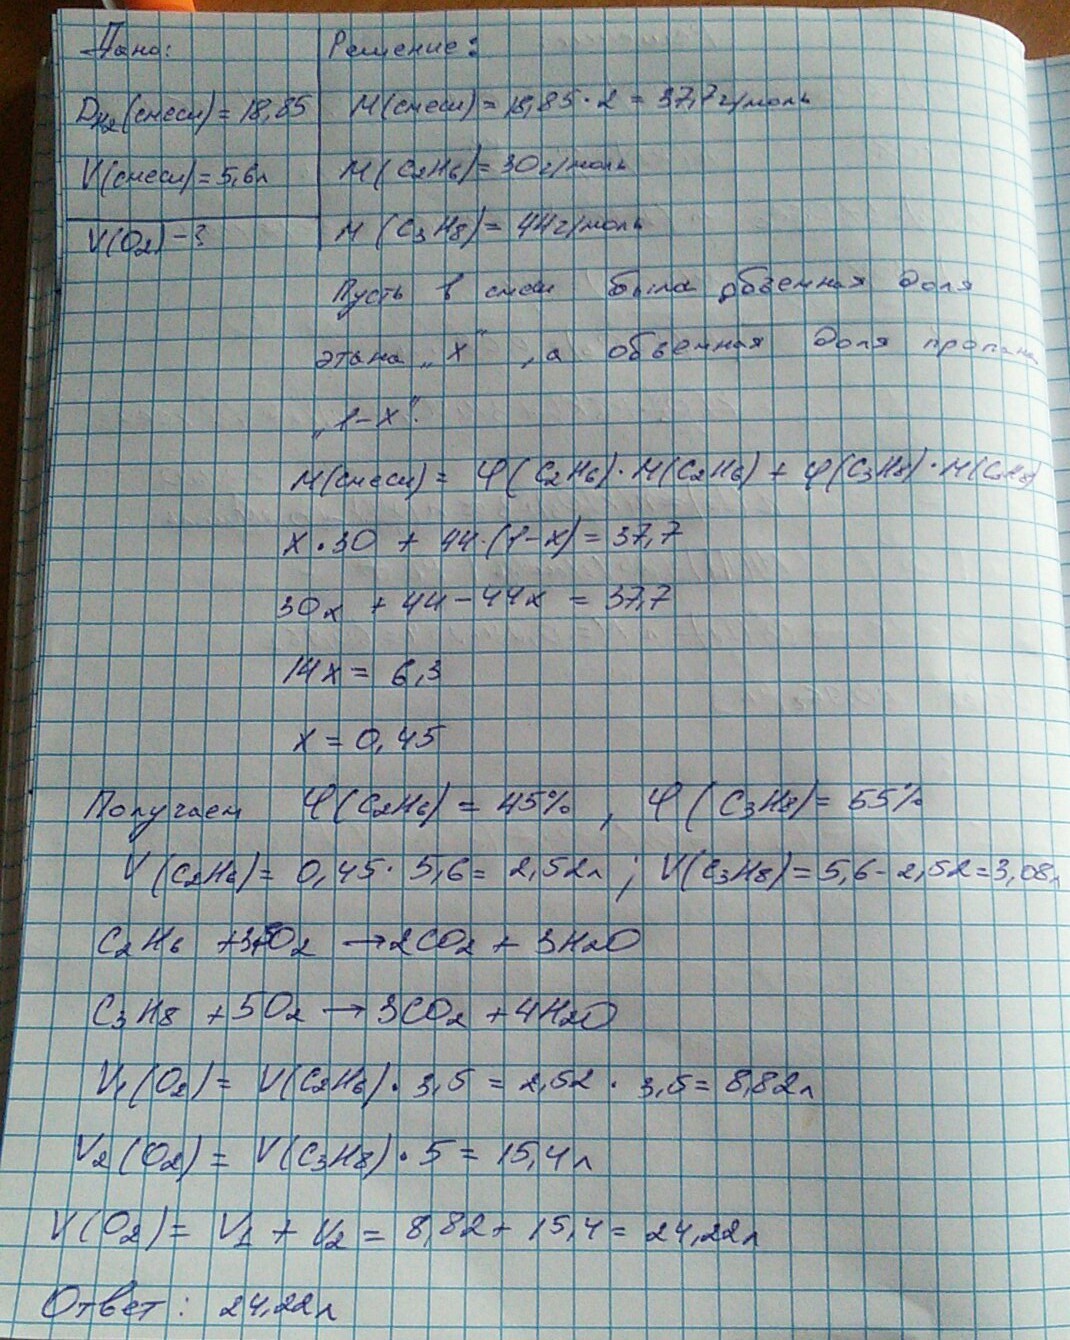 Дано:
Решение:
D_H2(смеси) = 18,85
M(смеси) = 18,85 · 2 = 37,7 г/моль
V(смеси) = 5,6л
M(C2H6) = 30 г/моль
V(O2) - ?
M(C3H8) = 44 г/моль
Пусть в смеси была объемная доля
этана „x“, а объемная доля пропана
„1-x“.
M(смеси) = φ(C2H6)·M(C2H6) + φ(C3H8)·M(C3H8)
x·30 + 44·(1-x) = 37,7
30x + 44 - 44x = 37,7
14x = 6,3
x = 0,45
Получаем φ(C2H6) = 45%, φ(C3H8) = 55%
V(C2H6) = 0,45·5,6 = 2,52л; V(C3H8) = 5,6 - 2,52 = 3,08л
C2H6 + 3,5O2 → 2CO2 + 3H2O
C3H8 + 5O2 → 3CO2 + 4H2O
V1(O2) = V(C2H6)·3,5 = 2,52·3,5 = 8,82л
V2(O2) = V(C3H8)·5 = 15,4л
V(O2) = V1 + V2 = 8,82 + 15,4 = 24,22л
Ответ: 24,22л